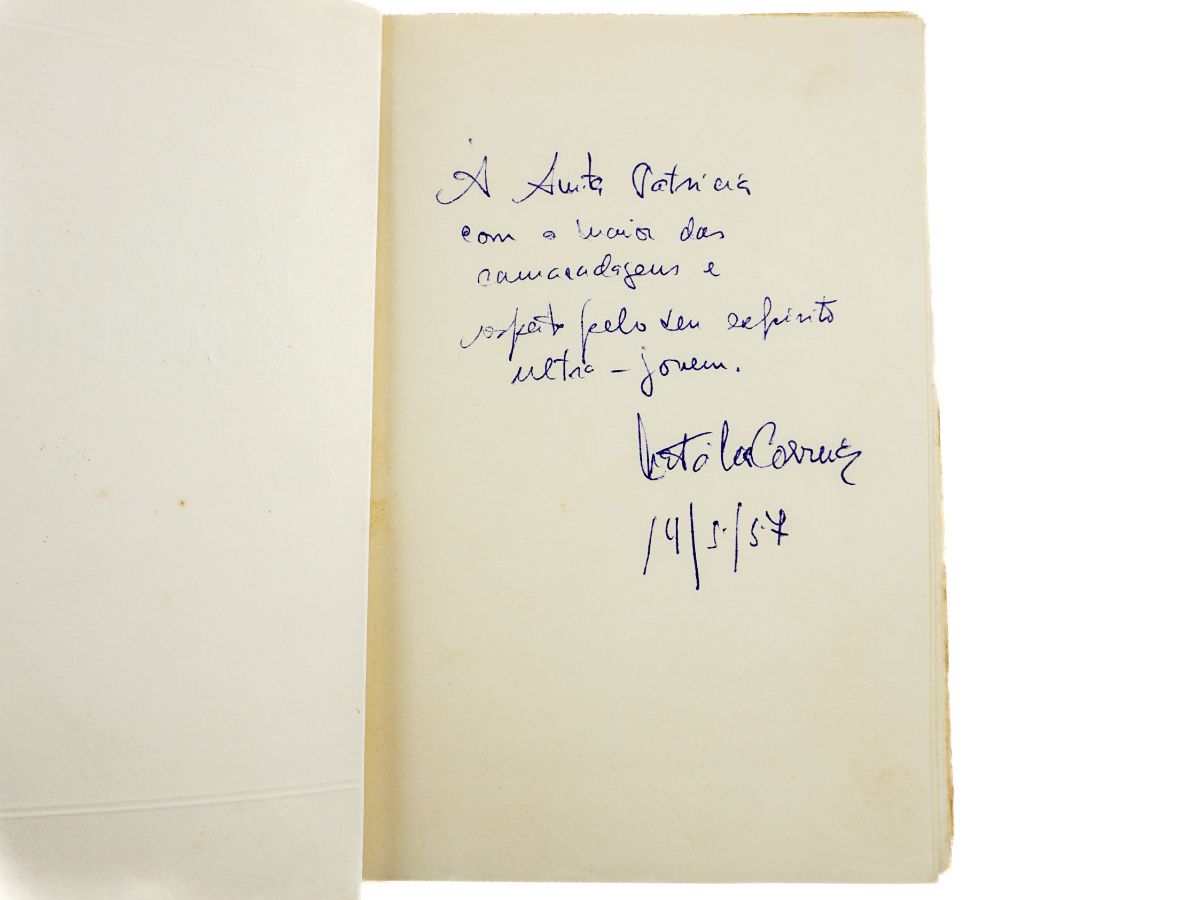 À Anita Patrícia
com a maior das
camaradagens e
respeito pelo seu espírito
ultra-jovem.
Natália Correia
14/5/57